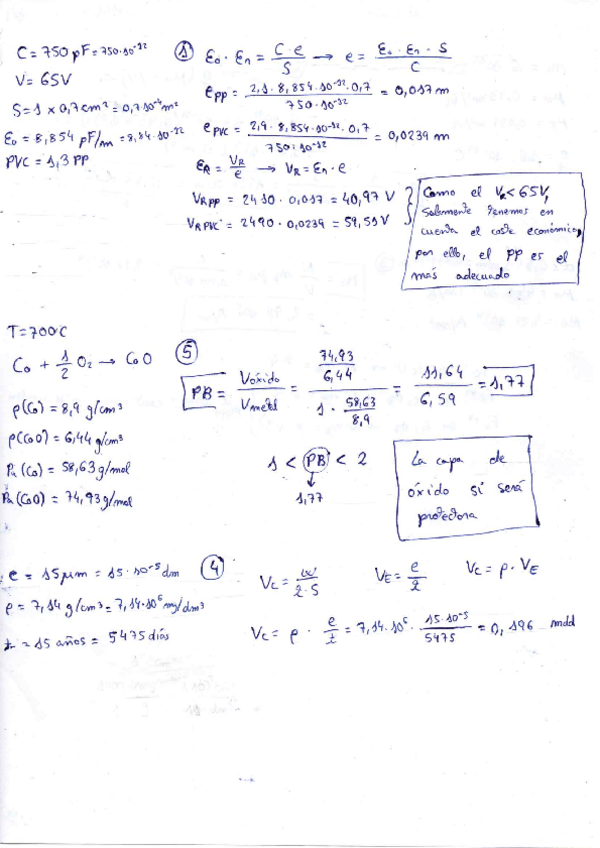 C = 750 pF = 750·10⁻¹²
V = 65V
S = 1 x 0,7 cm² = 0,7·10⁻⁴ m²
ε₀ = 8,854 pF/m = 8,84·10⁻¹²
PVC = 1,3 PP
① ε₀ · εn = C·e / S → e = ε₀ · εn · S / C
e PP = 2,1 · 8,854·10⁻¹² · 0,7 / 750·10⁻¹² = 0,017 m
e PVC = 2,9 · 8,854·10⁻¹² · 0,7 / 750·10⁻¹² = 0,0239 m
ER = VR / e → VR = En · e
VR PP = 2410 · 0,017 = 40,97 V
VR PVC = 2490 · 0,0239 = 59,51 V
Como el VR < 65V,
Solamente tenemos en
cuenta el coste económico,
por ello, el PP es el
más adecuado
T = 700ºC
Co + 1/2 O₂ → CoO
ρ(Co) = 8,9 g/cm³
ρ(CoO) = 6,44 g/cm³
Pa (Co) = 58,63 g/mol
Pa (CoO) = 74,93 g/mol
⑤
PB = Vóxido / Vmetal = (74,93 / 6,44) / (1 · 58,63 / 8,9) = 11,64 / 6,59 = 1,77
1 < PB < 2
1,77
La capa de
óxido si será
protectora
e = 15 μm = 15·10⁻⁵ dm
ρ = 7,14 g/cm³ = 7,14·10⁶ mg/dm³
t = 15 años = 5475 días
④ Vc = w / 2·S VE = e / 2 Vc = ρ · VE
Vc = ρ · e / t = 7,14·10⁶ · 15·10⁻⁵ / 5475 = 0,196 mdd